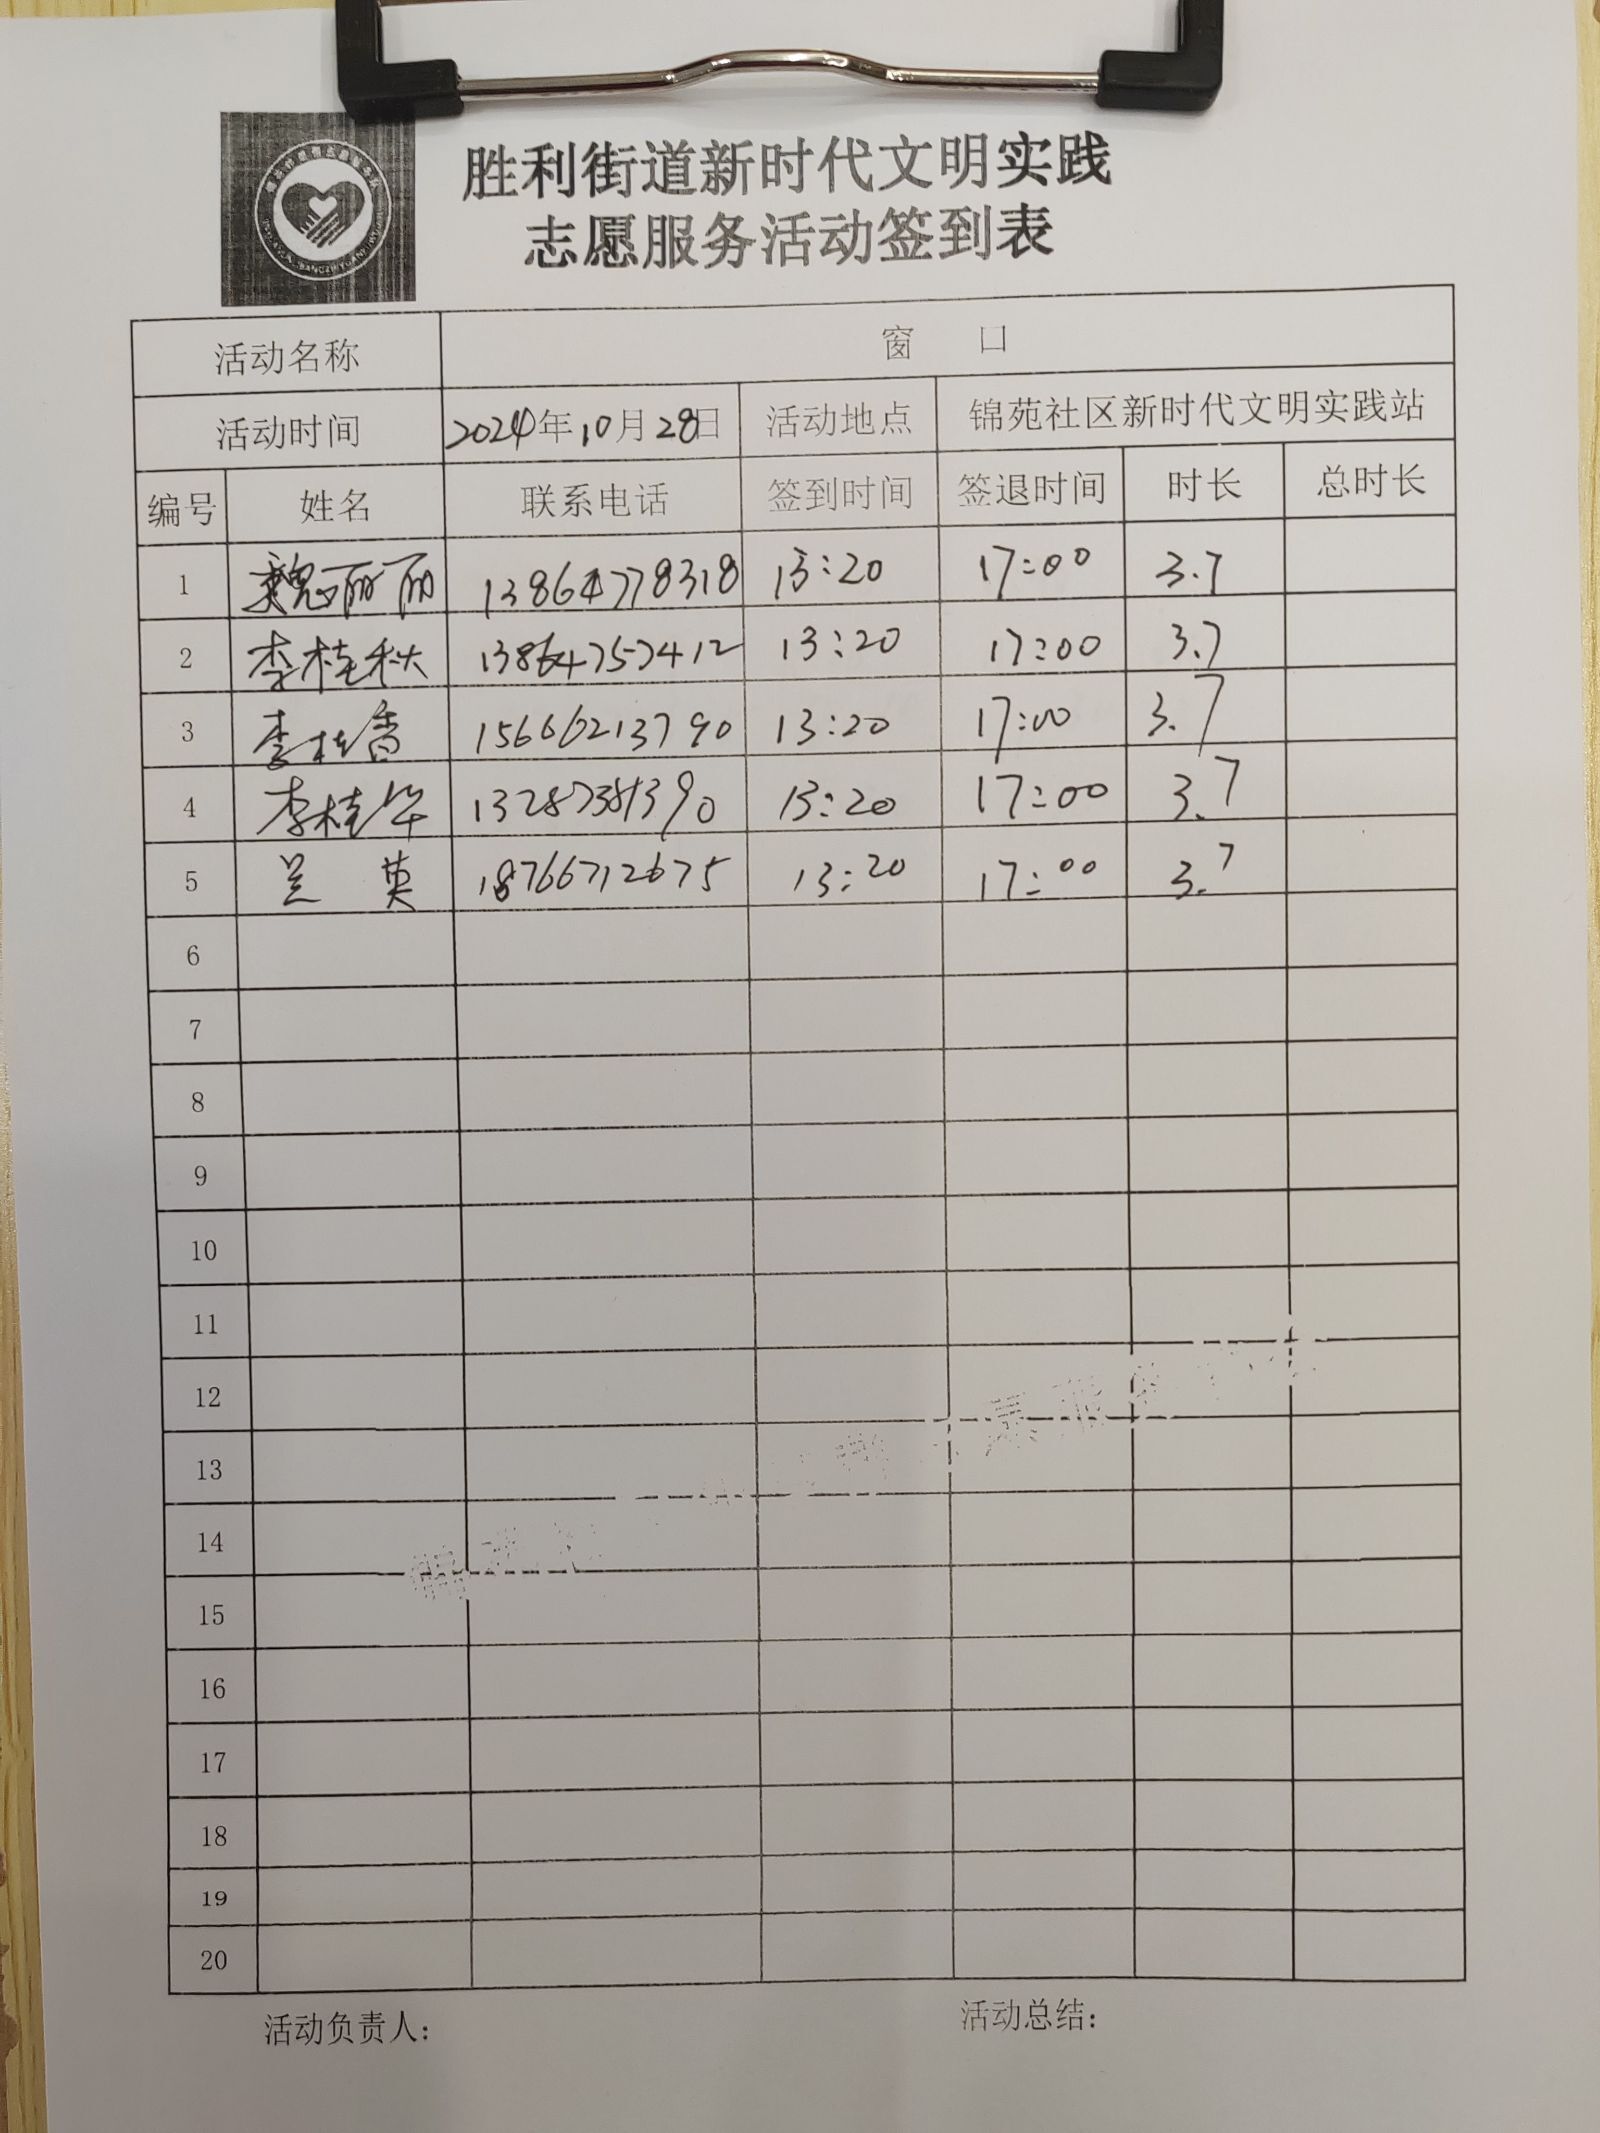 胜利街道新时代文明实践
志愿服务活动签到表
活动名称 窗 口
活动时间 2024年10月28日 活动地点 锦苑社区新时代文明实践站
编号 姓名 联系电话 签到时间 签退时间 时长 总时长
1 魏丽丽 13864778318 13:20 17:00 3.7
2 李桂秋 13864757412 13:20 17:00 3.7
3 李桂香 15666213790 13:20 17:00 3.7
4 李桂华 13287381390 13:20 17:00 3.7
5 兰 英 18766712675 13:20 17:00 3.7
6
7
8
9
10
11
12
13
14
15
16
17
18
19
20
活动负责人： 活动总结：